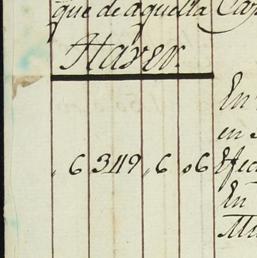 que de aquella Cap
Haver
En
en
,6 349,,6 ,,06 Efec
En
Ma